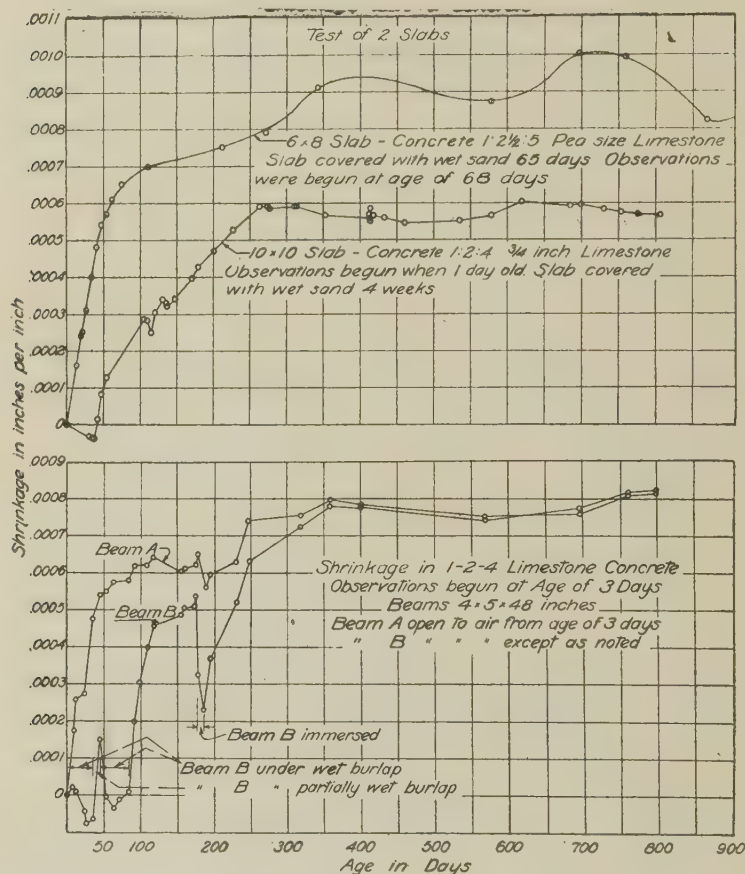 Test of 2 Slabs
.0011
.0010
.0009
.0008
.0007
.0006
.0005
.0004
.0003
.0002
.0001
0
6×8 Slab - Concrete 1:2½:5 Pea size Limestone
Slab covered with wet sand 65 days Observations
were begun at age of 68 days
10×10 Slab - Concrete 1:2:4 ¾ inch Limestone
Observations begun when 1 day old. Slab covered
with wet sand 4 weeks
Shrinkage in inches per inch
.0009
.0008
.0007
.0006
.0005
.0004
.0003
.0002
.0001
0
Beam A
Beam B
Shrinkage in 1-2-4 Limestone Concrete
Observations begun at Age of 3 Days
Beams 4×5×48 inches
Beam A open to air from age of 3 days
" B " " " except as noted
Beam B immersed
Beam B under wet burlap
" B " partially wet burlap
50 100 200 300 400 500 600 700 800 900
Age in Days